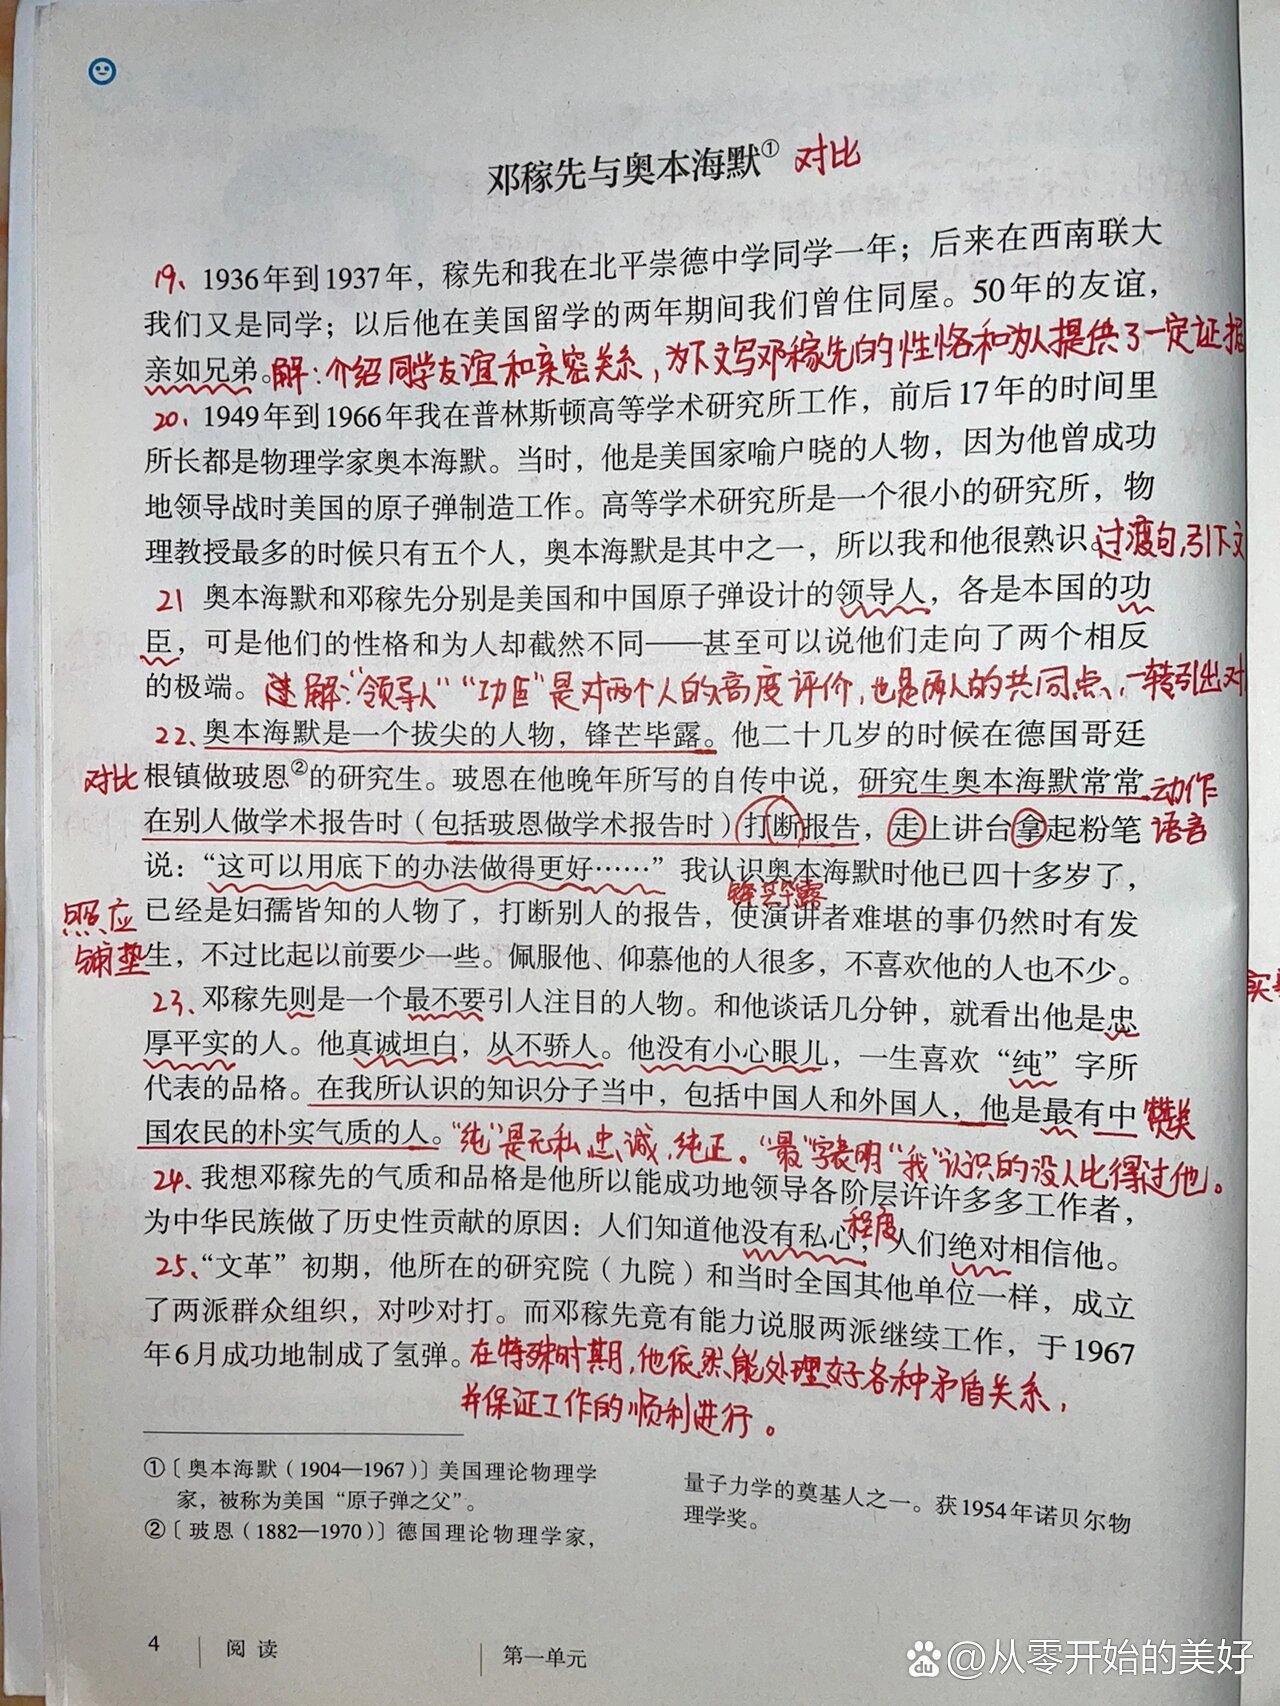 邓稼先与奥本海默① 对比
19、1936年到1937年，稼先和我在北平崇德中学同学一年；后来在西南联大
我们又是同学；以后他在美国留学的两年期间我们曾住同屋。50年的友谊，
亲如兄弟。解：介绍同学友谊和亲密关系，为下文写邓稼先的性恪和为人提供了一定证据
20、1949年到1966年我在普林斯顿高等学术研究所工作，前后17年的时间里
所长都是物理学家奥本海默。当时，他是美国家喻户晓的人物，因为他曾成功
地领导战时美国的原子弹制造工作。高等学术研究所是一个很小的研究所，物
理教授最多的时候只有五个人，奥本海默是其中之一，所以我和他很熟识。过渡句，引下文
21 奥本海默和邓稼先分别是美国和中国原子弹设计的领导人，各是本国的功
臣，可是他们的性格和为人却截然不同——甚至可以说他们走向了两个相反
的极端。解：“领导人”“功臣”是对两个人的高度评价，也是两人的共同点，一转引出对
22、奥本海默是一个拔尖的人物，锋芒毕露。他二十几岁的时候在德国哥廷
对比 根镇做玻恩②的研究生。玻恩在他晚年所写的自传中说，研究生奥本海默常常 动作
在别人做学术报告时（包括玻恩做学术报告时）打断报告，走上讲台拿起粉笔 语言
说：“这可以用底下的办法做得更好……”我认识奥本海默时他已四十多岁了，
锋芒毕露
照应 已经是妇孺皆知的人物了，打断别人的报告，使演讲者难堪的事仍然时有发
铺垫 生，不过比起以前要少一些。佩服他、仰慕他的人很多，不喜欢他的人也不少。
23、邓稼先则是一个最不要引人注目的人物。和他谈话几分钟，就看出他是忠
厚平实的人。他真诚坦白，从不骄人。他没有小心眼儿，一生喜欢“纯”字所
代表的品格。在我所认识的知识分子当中，包括中国人和外国人，他是最有中 赞美
国农民的朴实气质的人。“纯”是无私，忠诚，纯正。“最”字表明“我”认识的没人比得过他。
24、我想邓稼先的气质和品格是他所以能成功地领导各阶层许许多多工作者，
为中华民族做了历史性贡献的原因：人们知道他没有私心，人们绝对相信他。
程度
25、“文革”初期，他所在的研究院（九院）和当时全国其他单位一样，成立
了两派群众组织，对吵对打。而邓稼先竟有能力说服两派继续工作，于1967
年6月成功地制成了氢弹。在特殊时期，他依然能处理好各种矛盾关系，
并保证工作的顺利进行。
①〔奥本海默（1904—1967）〕美国理论物理学
家，被称为美国“原子弹之父”。
②〔玻恩（1882—1970）〕德国理论物理学家，
量子力学的奠基人之一。获1954年诺贝尔物
理学奖。
4 阅读 第一单元
du @从零开始的美好